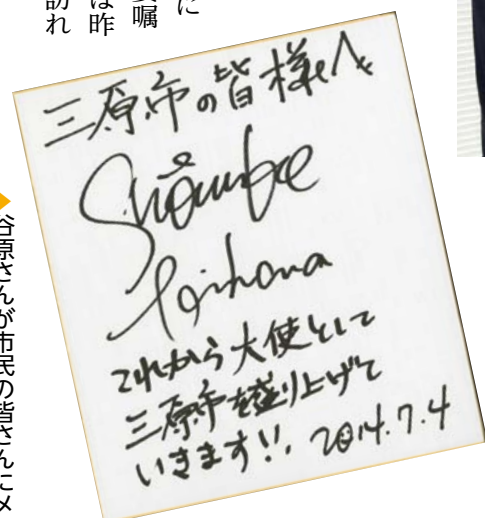 に
嘱
は昨
訪れ
三原市の皆様へ
Shosuke
Tanihara
これから大使として
三原市を盛り上げて
いきます!!
2014.7.4
谷原さんが市民の皆さんにメ